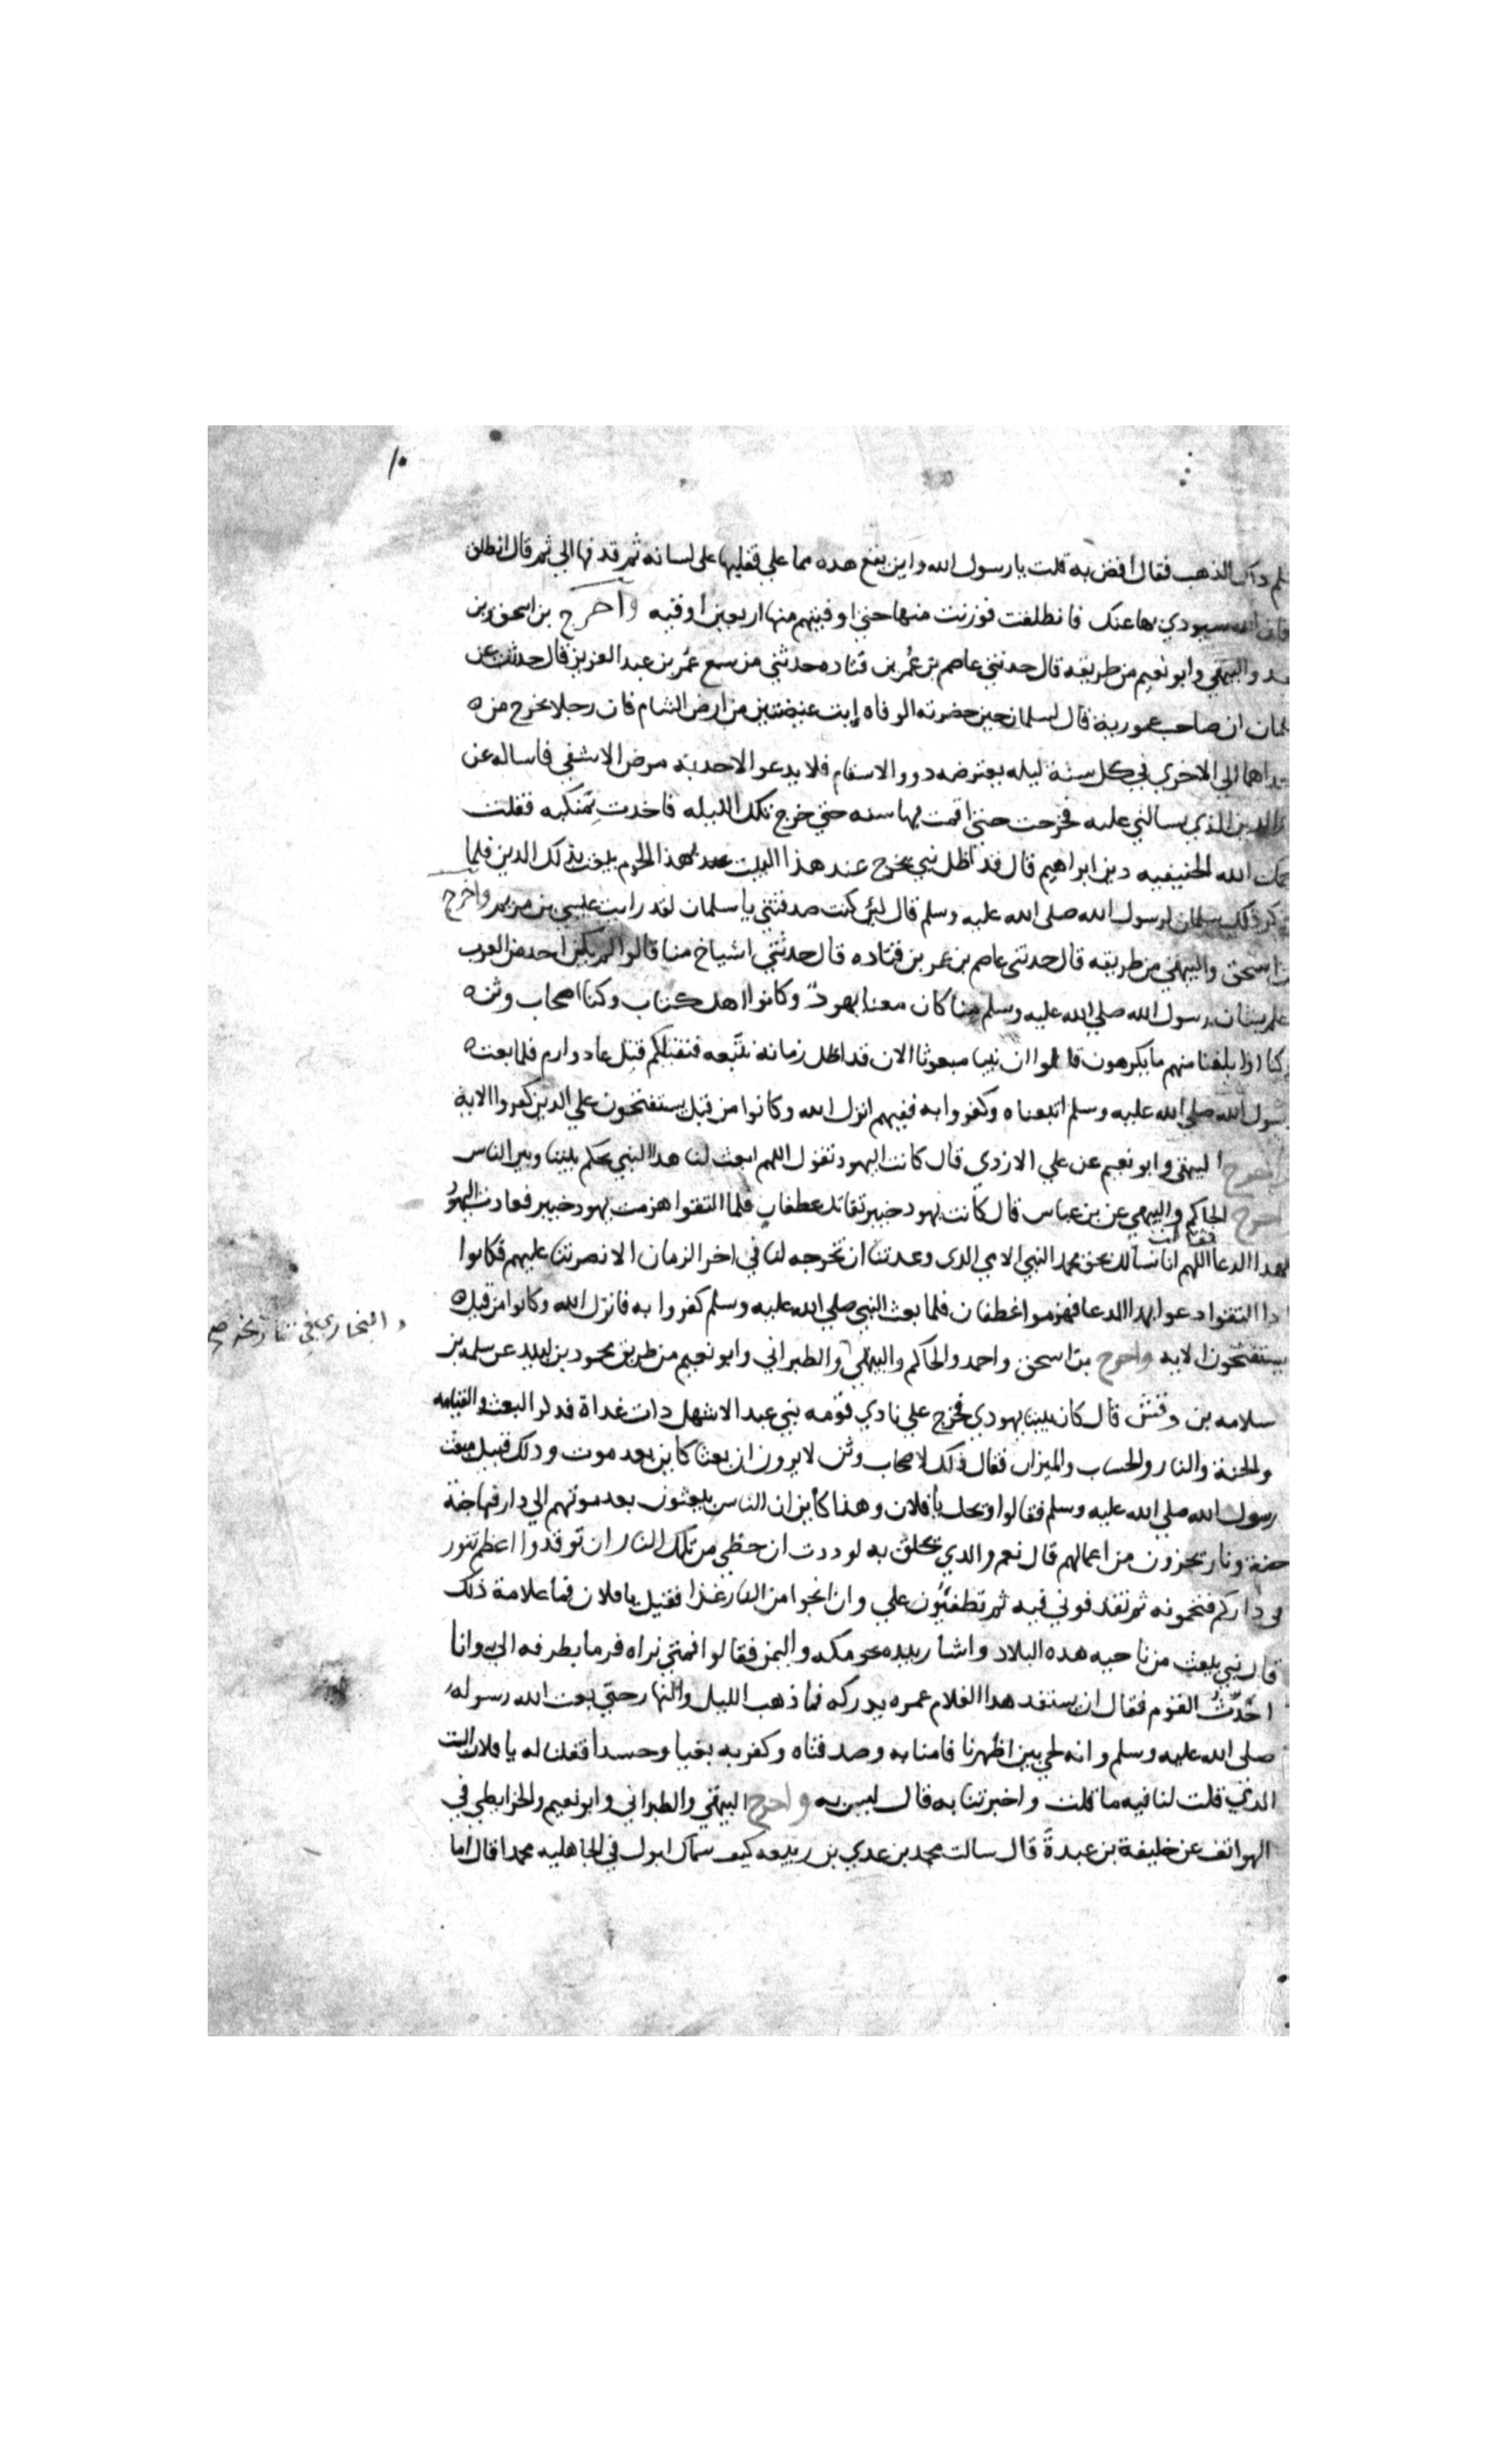 ١٠
الذهب فقال اقض به قلت يا رسول الله واين يقع هده مما علي فقلبها على لسانه ثم قدفها الي ثم قال انطلق
فان الله سيودي بها عنك فانطلقت فوزنت منها حتي اوفيتهم منها اربعين اوقيه واخرج بن اسحق وبن
والبيهقي وابو نعيم من طريقه قال حدثني عاصم بن عمر بن قتاده حدثني من سمع عمر بن عبد العزيز قال حدثت عن
ان صاحب عموريه قال لسلمان حين حضرته الوفاه ايت غيضتين من ارض الشام فان رجلا يخرج من
الى الاخري في كل سنة ليله يعترضه دوو الاسقام فلا يدعو لاحد به مرض الا شفي فاساله عن
الدين الذي يسالني عليه فخرجت حتي اقمت بها سنه حتي خرج تلك الليله فاخدت بمنكبه فقلت
الله الحنيفيه دين ابراهيم قال قد اظل نبي يخرج عند هذا البيت بهذا الحرم يبعث بذلك الدين فلما
ذكر ذلك سلمان لرسول الله صلى الله عليه وسلم قال لئن كنت صدقتني يا سلمان لقد رايت عيسي بن مريم واخرج
بن اسحق والبيهقي من طريقه قال حدثني عاصم بن عمر بن قتاده قال حدثني اشياخ منا قالوا لم يكن احد من العرب
اعلم بشان رسول الله صلي الله عليه وسلم منا كان معنا يهود وكانوا اهل كتاب وكنا اصحاب وثن
وكنا اذا بلغنا منهم ما يكرهون قالوا ان نبيا مبعوثا الان قد اظل زمانه نتبعه فنقتلكم قتل عاد وارم فلما بعث
رسول الله صلي الله عليه وسلم اتبعناه وكفروا به ففيهم انزل الله وكانوا من قبل يستفتحون علي الدين كفروا الاية
واخرج البيهقي وابو نعيم عن علي الازدي قال كانت اليهود تقول اللهم ابعث لنا هدا النبي يحكم بيننا وبين الناس
واخرج الحاكم والبيهقي عن بن عباس قال كانت يهود خيبر تقاتل غطفان فلما التقوا هزمت يهود خيبر فعادت اليهود
فقالت
بهدا الدعا اللهم انا نسالك بحق محمد النبي الامي الدى وعدتنا ان تخرجه لنا في اخر الزمان الا نصرتنا عليهم فكانوا
ادا التقوا دعوا بهدا الدعا فهزموا غطفان فلما بعث النبي صلي الله عليه وسلم كفروا به فانزل الله وكانوا من قبل
يستفتحون الايه واخرج بن اسحق واحمد والحاكم والبيهقي والطبراني وابو نعيم من طريق محمود بن لبيد عن سلمه بن
والبخاري في تاريخه صح
سلامه بن وقش قال كان بيننا يهودي فخرج علي نادي قومه بني عبد الاشهل دات غداة فدكر البعث والقيامه
والجنة والنار والحساب والميزان فقال ذلك لاصحاب وثن لا يرون ان بعثا كاين بعد موت ودلك قبيل مبعث
رسول الله صلي الله عليه وسلم فقالوا ويحك يا فلان وهذا كاين ان الناس يبعثون بعد موتهم الي دار فيها جنة
ونار يجزون من اعمالهم قال نعم والدي يحلف به لوددت ان حظي من تلك النار ان توقدوا اعظم تنور
في داركم فتحمونه ثم تقدفوني فيه ثم تطفئون علي وان انجوا من النار غدا فقيل يا فلان فما علامة ذلك
قال نبي يبعث من ناحيه هده البلاد واشار بيده نحو مكه واليمن فقالوا فمتي نراه فرما بطرفه الي وانا
احدث القوم فقال ان يستنفد هدا الغلام عمره يدركه فما ذهب الليل والنهار حتي بعث الله رسوله
صلى الله عليه وسلم وانه لحي بين اظهرنا فامنا به وصدقناه وكفر به بغيا وحسدا فقلنا له يا فلان الست
الذي قلت لنا فيه ما قلت واخبرتنا به قال ليس به واخرج البيهقي والطبراني وابو نعيم والخرايطي في
الهواتف عن خليفة بن عبدة قال سالت محمد بن عدي بن ربيعه كيف سماك ابوك في الجاهليه محمدا قال اما